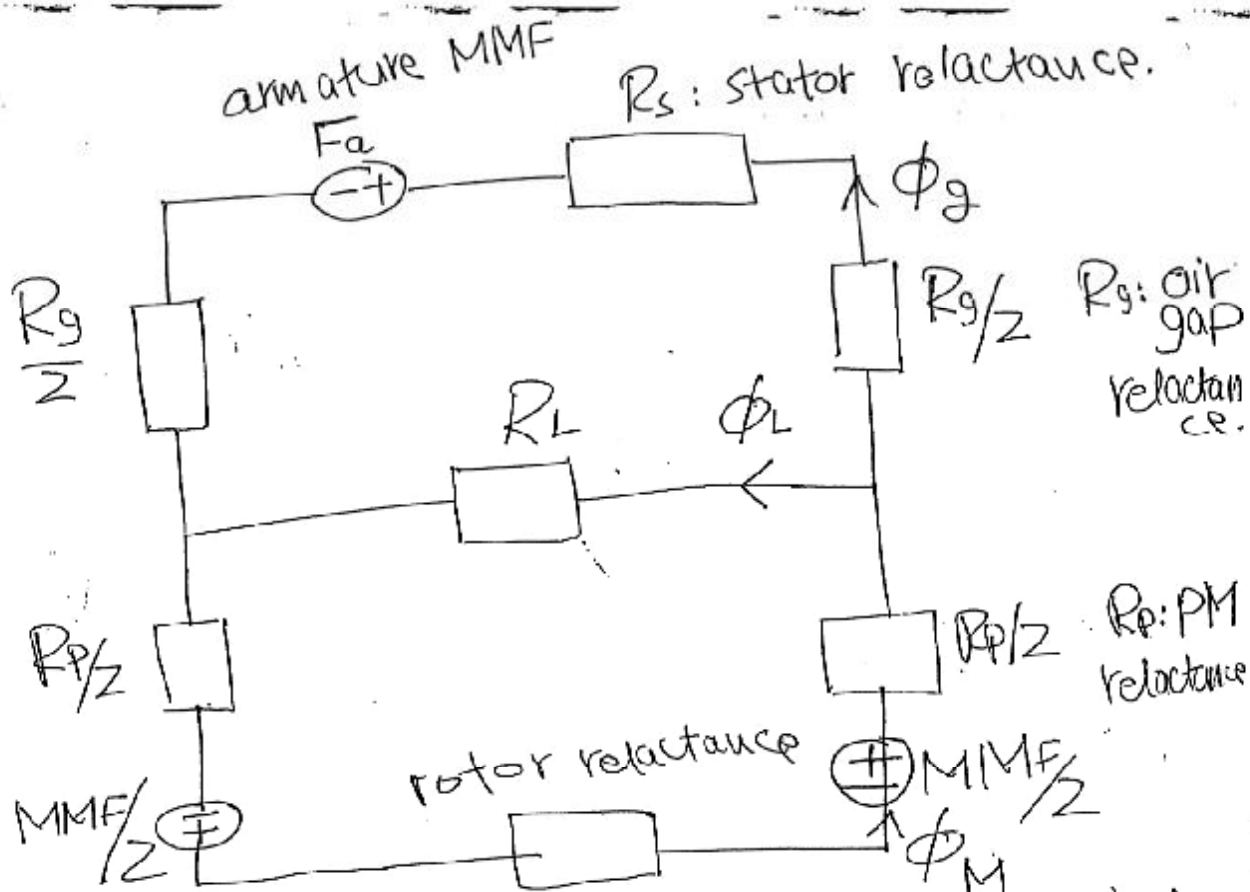 armature MMF
Rs: stator relactance.
Fa
-+
ϕg
Rg
2
Rg/2
Rg: air
gap
relactan
ce.
RL
ϕL
Rp/2
Rp/2
Rp: PM
relactance
rotor relactance
+
-
MMF/2
MMF/2
ϕM